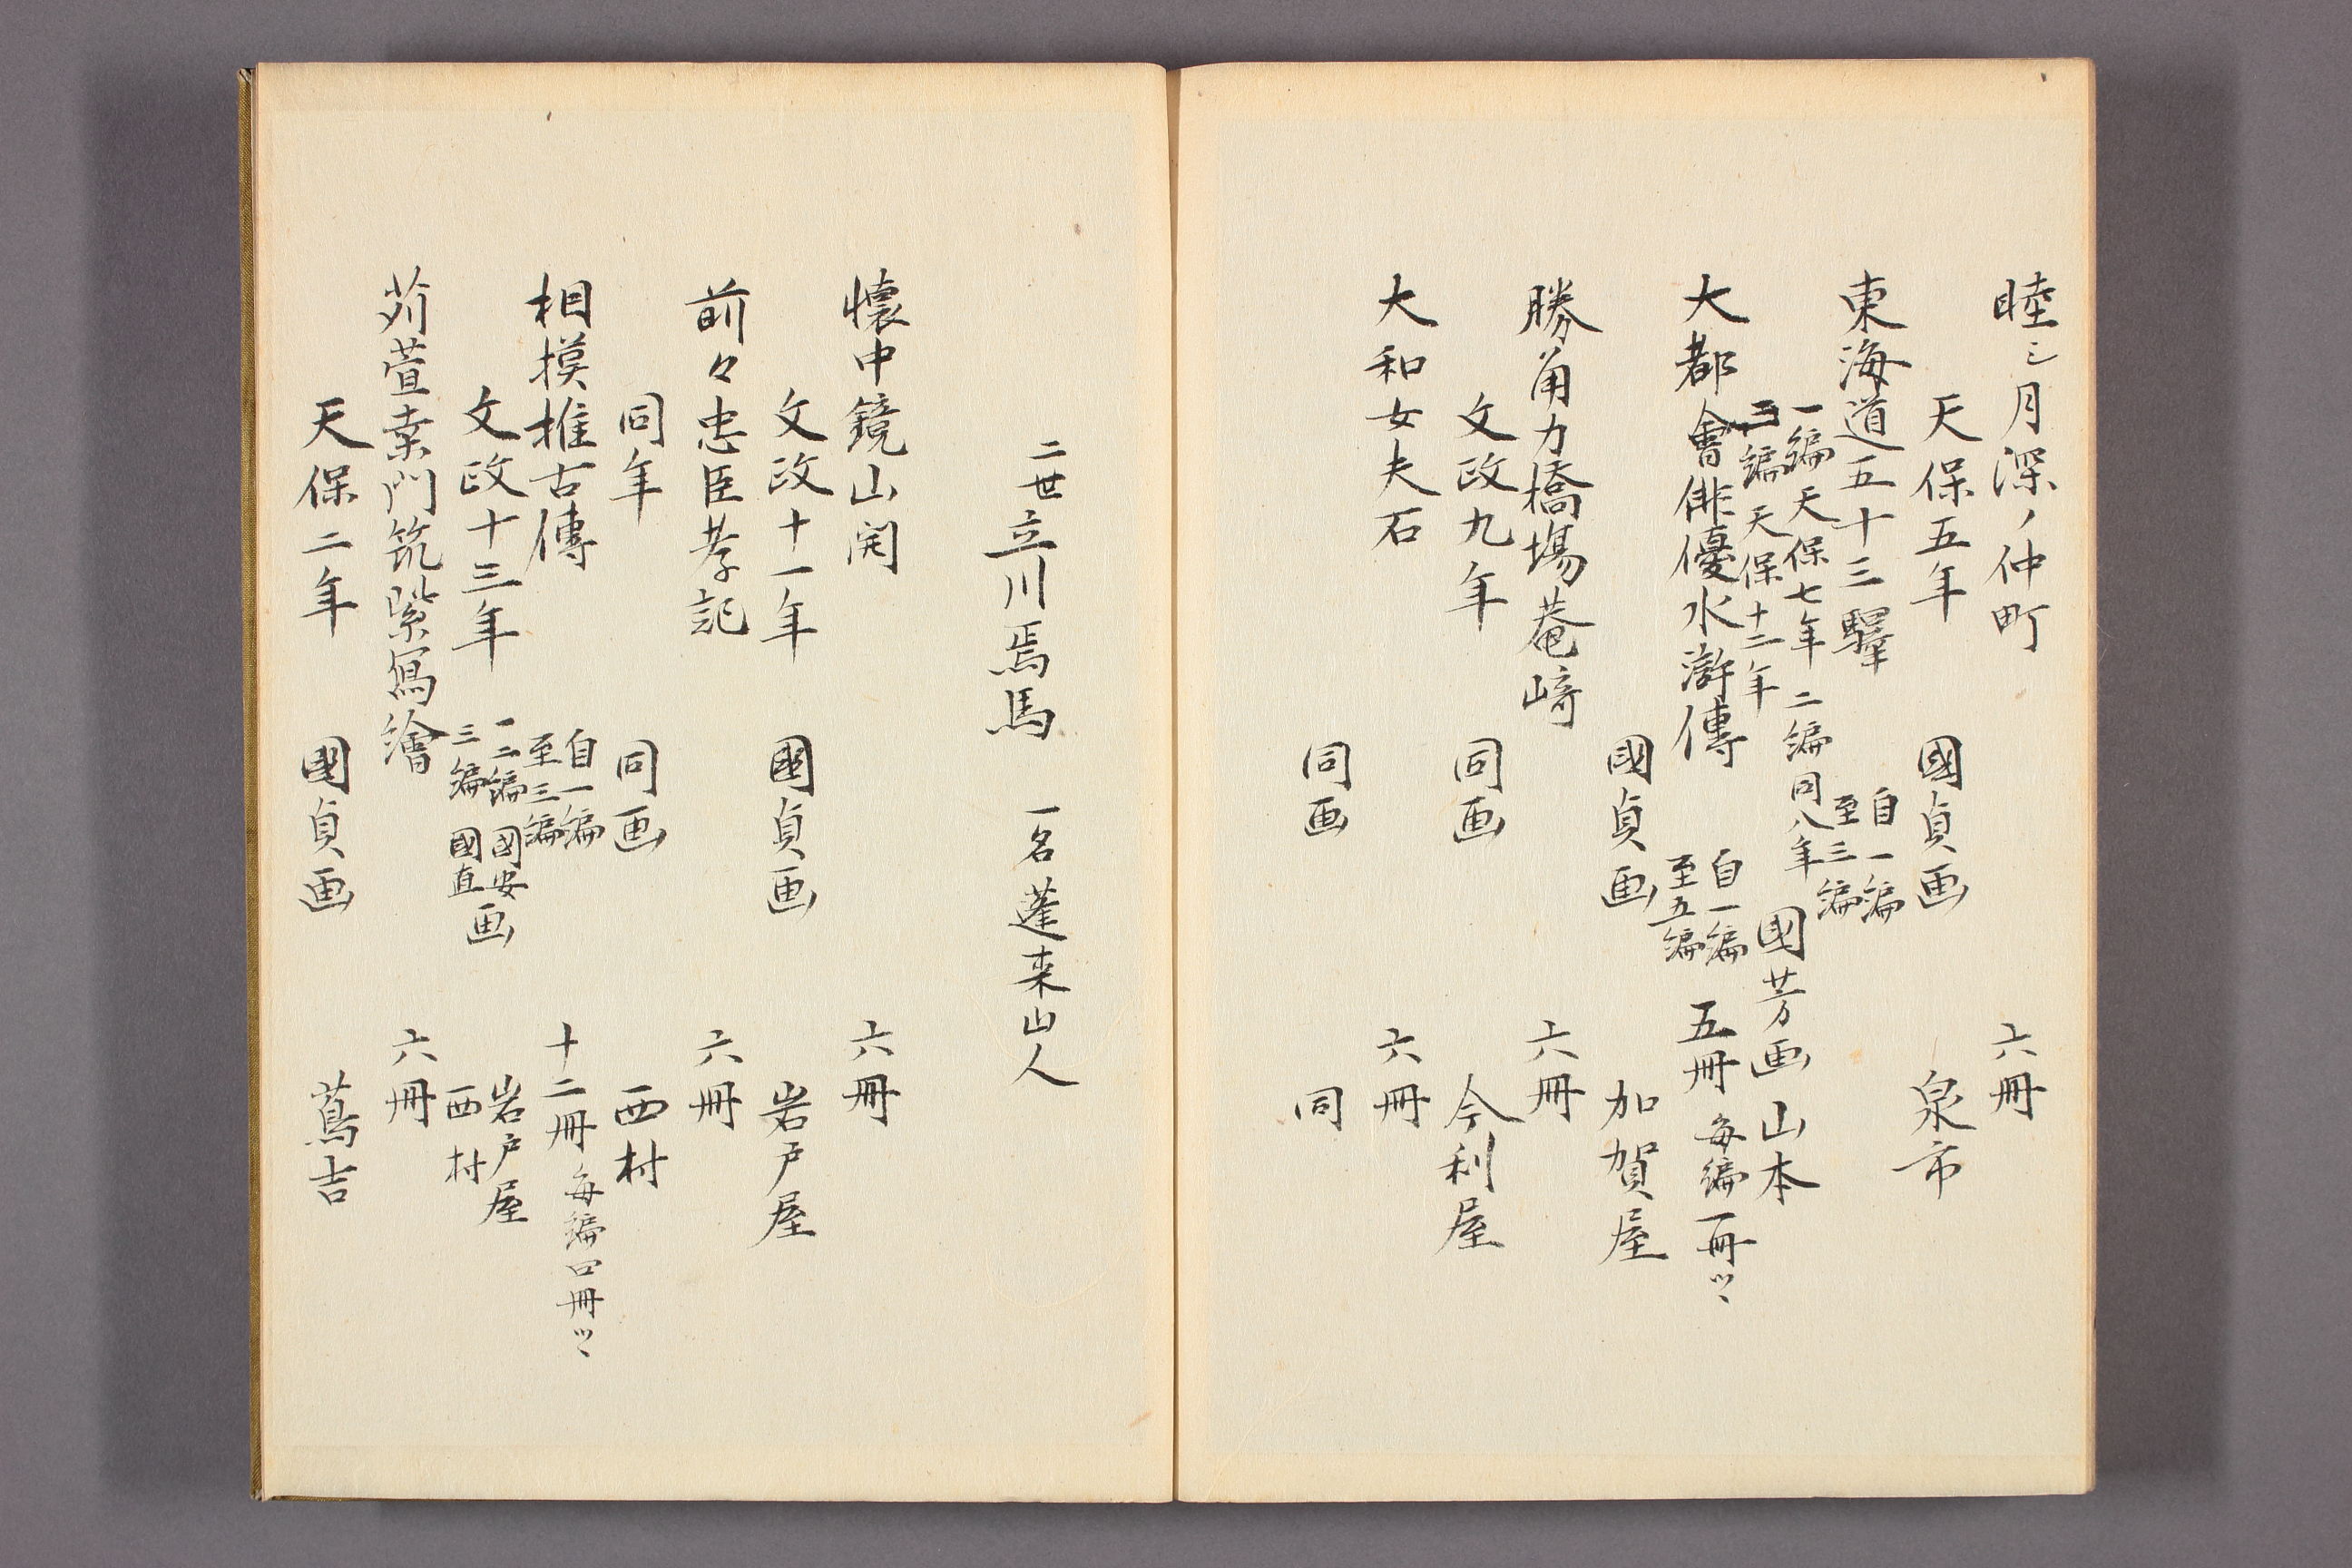 睦シ月深ノ仲町　六冊
天保五年　國貞画　泉市
東海道五十三驛　自一編至三編
一編天保七年　二編同八年
三編天保十二年　國芳画　山本
大都會俳優水滸傳　自一編至五編　五冊　毎編一冊ツヽ
國貞画　加賀屋
勝角力橋場菴﨑　六冊
文政九年　同画　今利屋
大和女夫石　六冊
同画　同
二世立川焉馬　一名蓬来山人
懐中鏡山開　六冊
文政十一年　國貞画　岩戸屋
前々忠臣孝記　六冊
同年　同画　西村
相摸推古傳　自一編至三編　十二冊　毎編四冊ツヽ
文政十三年　一二編國安　三編國直画　岩戸屋　西村
苅萱桒門筑紫寫繪　六冊
天保二年　國貞画　蔦吉